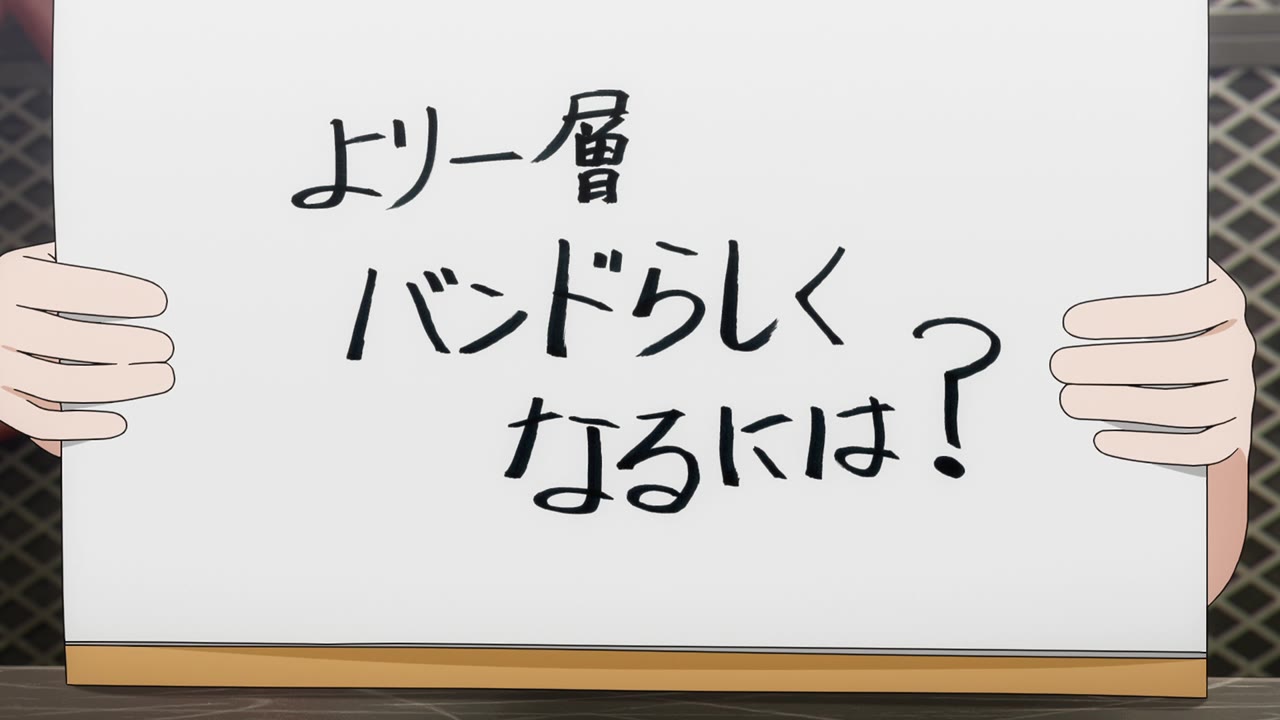 より一層
バンドらしく
なるには?